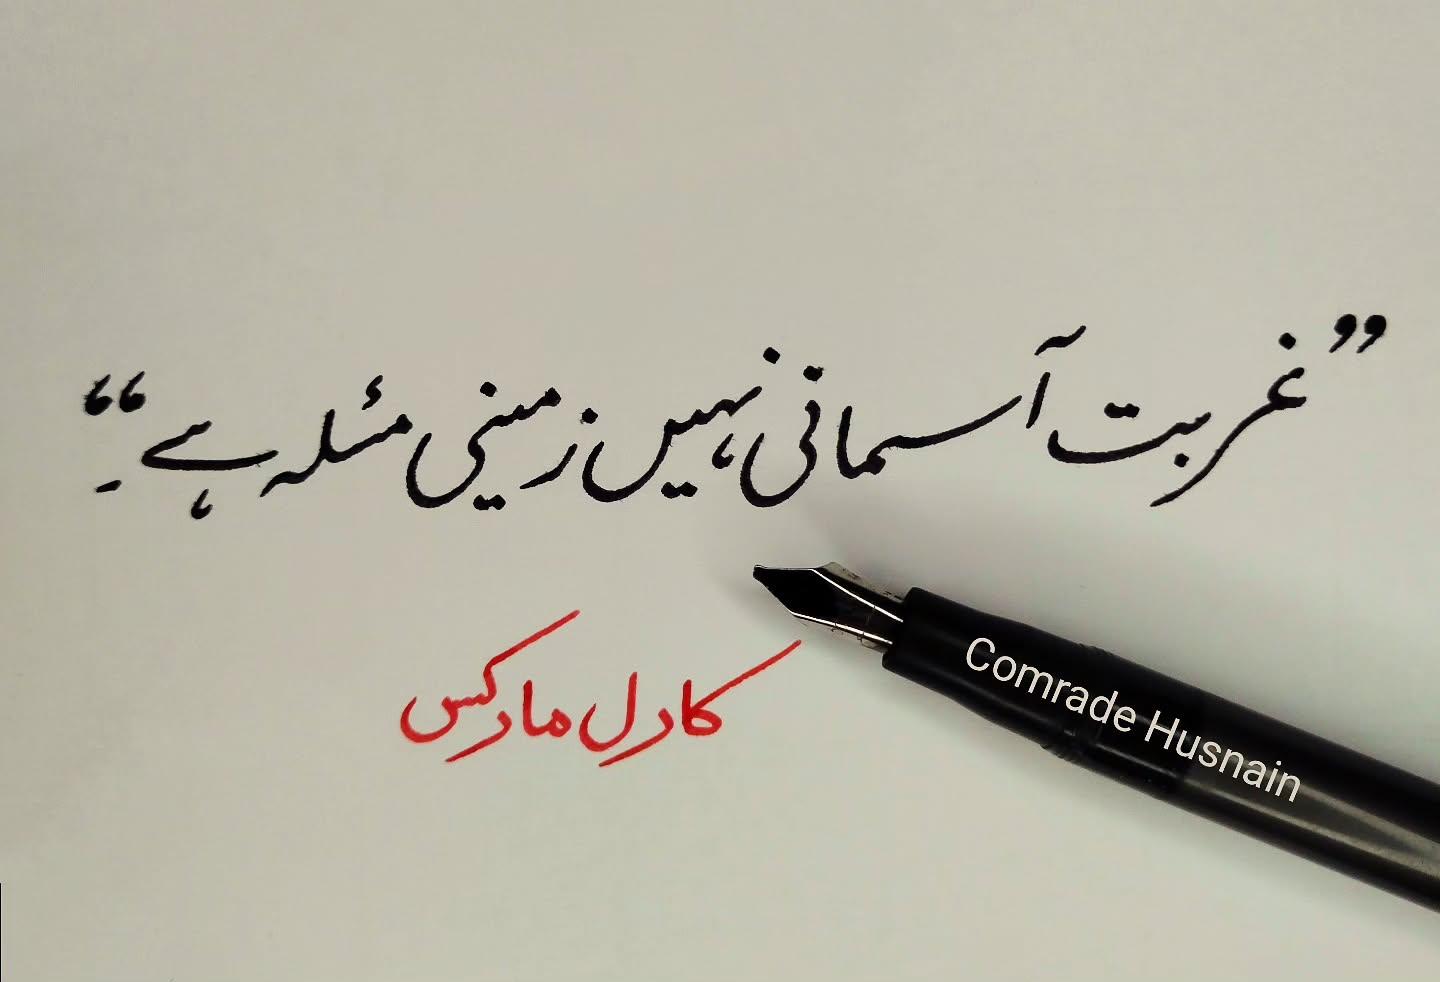 ”غربت آسمانی نہیں زمینی مئلہ ہے۔“
کارل مارکس
Comrade Husnain